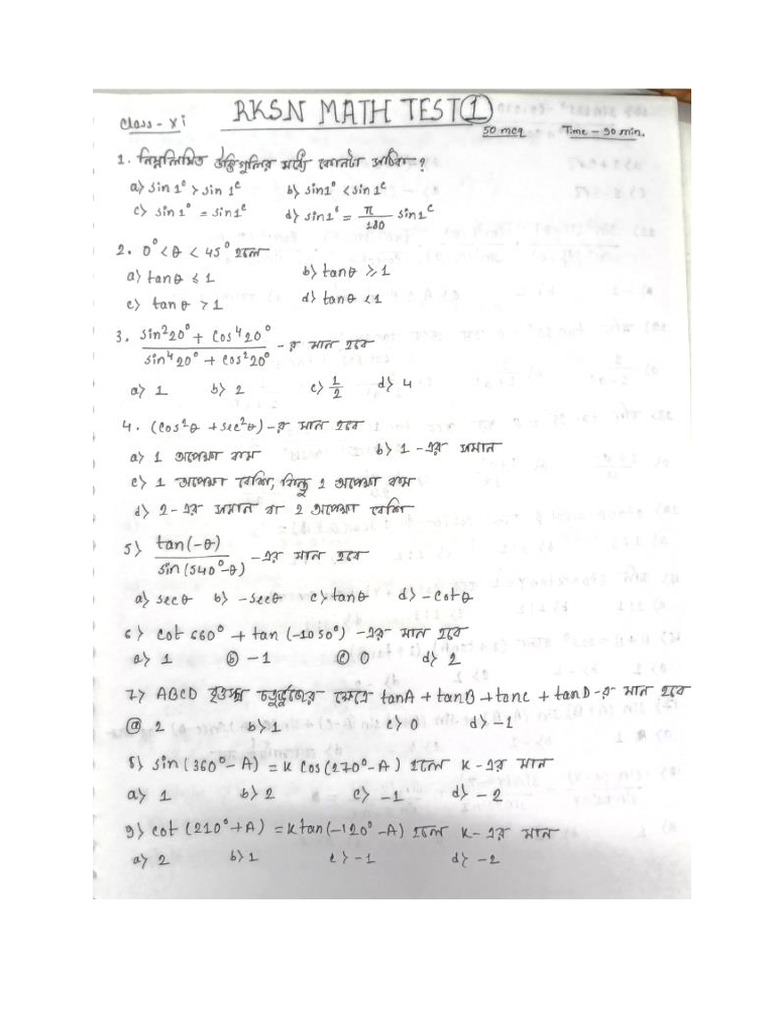 RKSN MATH TEST ①
Class - XI
50 mcq Time - 90 min.
1. নিম্নলিখিত উক্তিগুলির মধ্যে কোনটা সঠিক?
a) sin 1° > sin 1ᶜ b) sin1° < sin 1ᶜ
c) sin 1° = sin1ᶜ d) sin1° = π/180 sin1ᶜ
2. 0° < θ < 45° হলে
a) tanθ ≤ 1 b) tanθ ≥ 1
c) tanθ > 1 d) tanθ < 1
3. (sin²20° + cos⁴20°)/(sin⁴20° + cos²20°) - র মান হবে
a) 1 b) 2 c) 1/2 d) 4
4. (cos²θ + sec²θ) - র মান হবে
a) 1 অপেক্ষা কম b) 1 - এর সমান
c) 1 অপেক্ষা বেশি, কিন্তু 2 অপেক্ষা কম
d) 2 - এর সমান বা 2 অপেক্ষা বেশি
5) tan(-θ)/sin(540°-θ) - এর মান হবে
a) secθ b) -secθ c) tanθ d) -cotθ
6) cot 660° + tan (-1050°) - এর মান হবে
a) 1 ⓑ -1 ⓒ 0 d) 2
7) ABCD বৃত্তস্থ চতুর্ভুজের ক্ষেত্রে tanA + tanB + tanC + tanD - র মান হবে
ⓐ 2 b) 1 c) 0 d) -1
8) sin (360° - A) = K cos(270° - A) হলে K - এর মান
a) 1 b) 2 c) -1 d) -2
9) cot (210° + A) = K tan(-120° - A) হলে K - এর মান
a) 2 b) 1 c) -1 d) -2